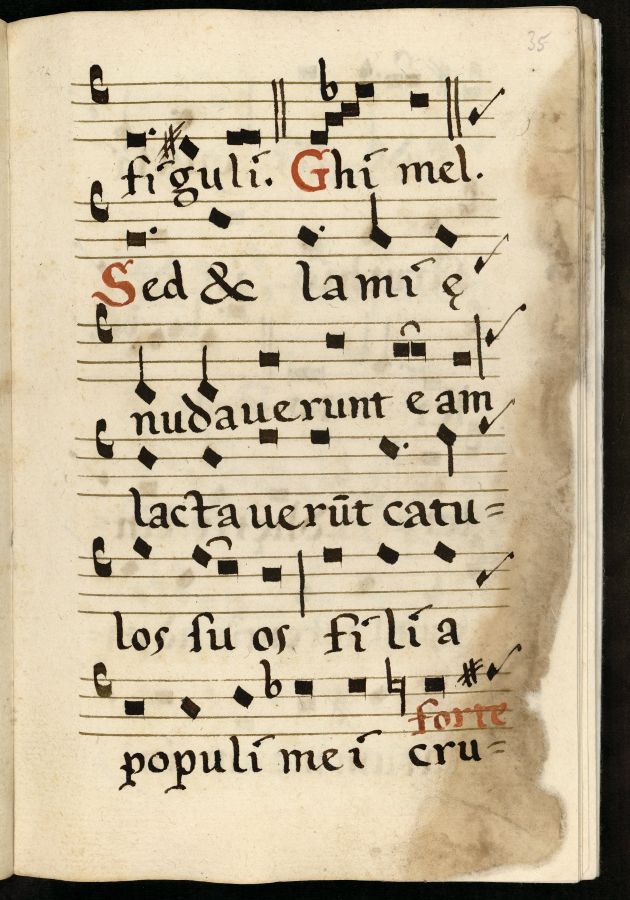 35
figuli. Ghimel.
Sed & lamię
nudauerunt eam
lactauerūt catu=
los suos filia
forte
populi mei cru=